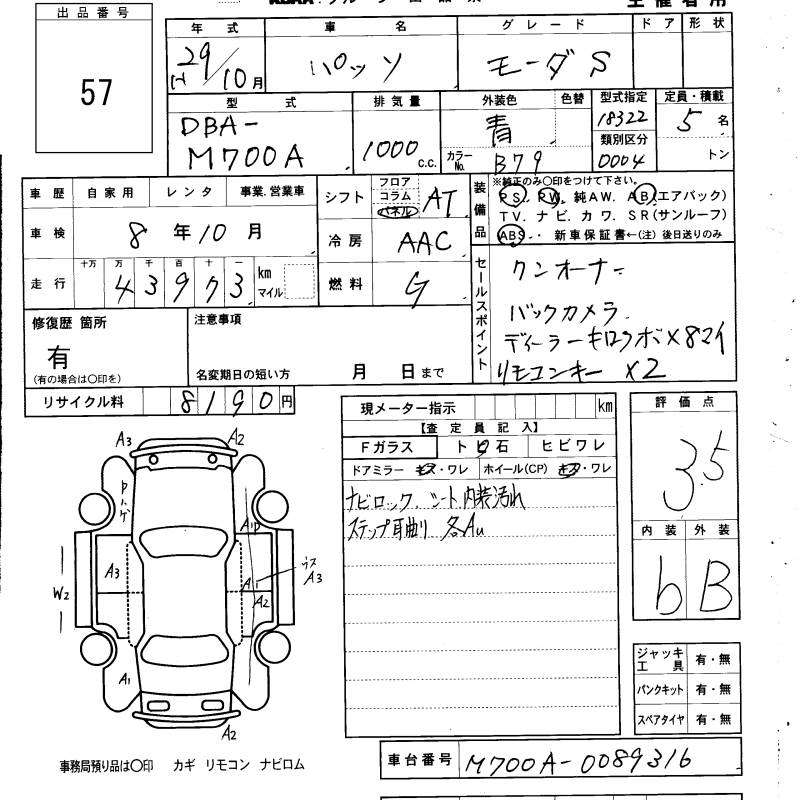 出品番号
57
年式 車名 グレード ドア 形状
H 29/10月 パッソ モーダS
型式 排気量 外装色 色替 型式指定 定員・積載
DBA-M700A 1000 c.c. 青 18322 5名
カラーNo. B79 類別区分 0004 トン
車歴 自家用 レンタ 事業.営業車
車検 8年10月
走行 十万 万 千 百 十 一 km マイル
43973
シフト フロア コラム パネル AT
冷房 AAC
燃料 G
装備品 ※純正のみ〇印をつけて下さい。
PS. PW. 純AW. AB(エアバック)
TV. ナビ. カワ. SR(サンルーフ)
ABS.・新車保証書←(注)後日送りのみ
セールスポイント
ワンオーナー
バックカメラ.
ディーラーキロクボ×8マイ
リモコンキー ×2
修復歴 箇所
有
(有の場合は〇印を)
注意事項
名変期日の短い方 月 日まで
リサイクル料 8190円
現メーター指示 km
【査定員記入】
Fガラス トビ石 ヒビワレ
ドアミラー キズ・ワレ ホイール(CP) キズ・ワレ
ナビロック. シート内装汚れ
ステップ耳曲り 各Au
評価点
3.5
内装 外装
b B
ジャッキ工具 有・無
パンクキット 有・無
スペアタイヤ 有・無
A3 A2
ハゲ
A1
A3
ウス A3
A1
A2
W2
A1
A2
事務局預り品は〇印 カギ リモコン ナビロム
車台番号 M700A-0089316